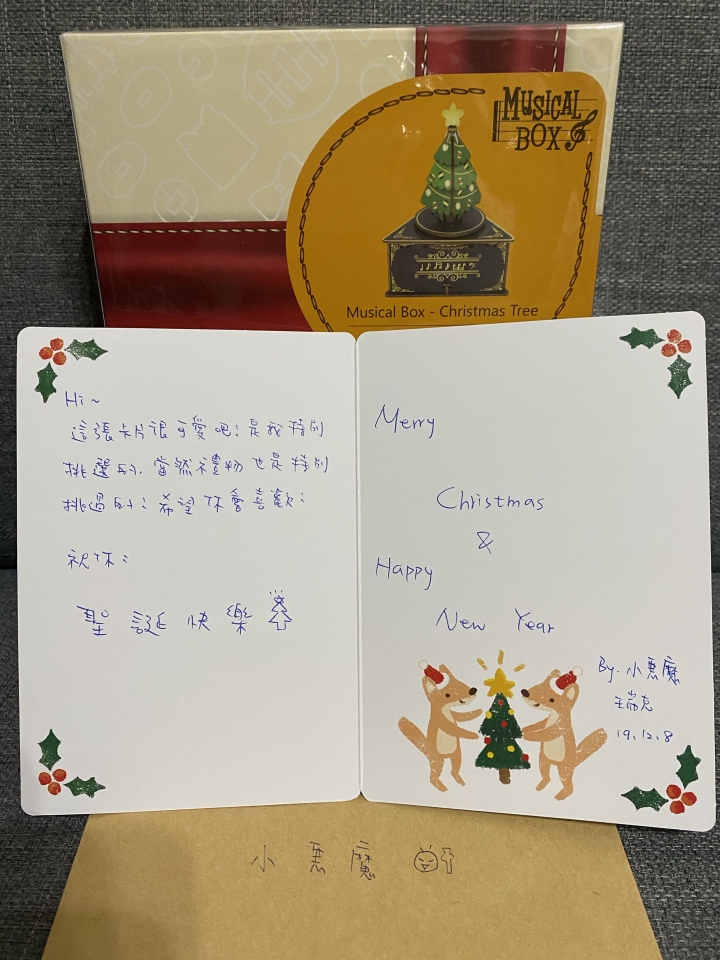 MUSICAL
BOX
Musical Box - Christmas Tree
Hi~
這張卡片很可愛吧!是我特別
挑選的,當然禮物也是特別
挑過的!希望你會喜歡!
祝你:
聖誕快樂
Merry
Christmas
&
Happy
New Year
By. 小惡魔
王瑞克
19.12.8
小惡魔